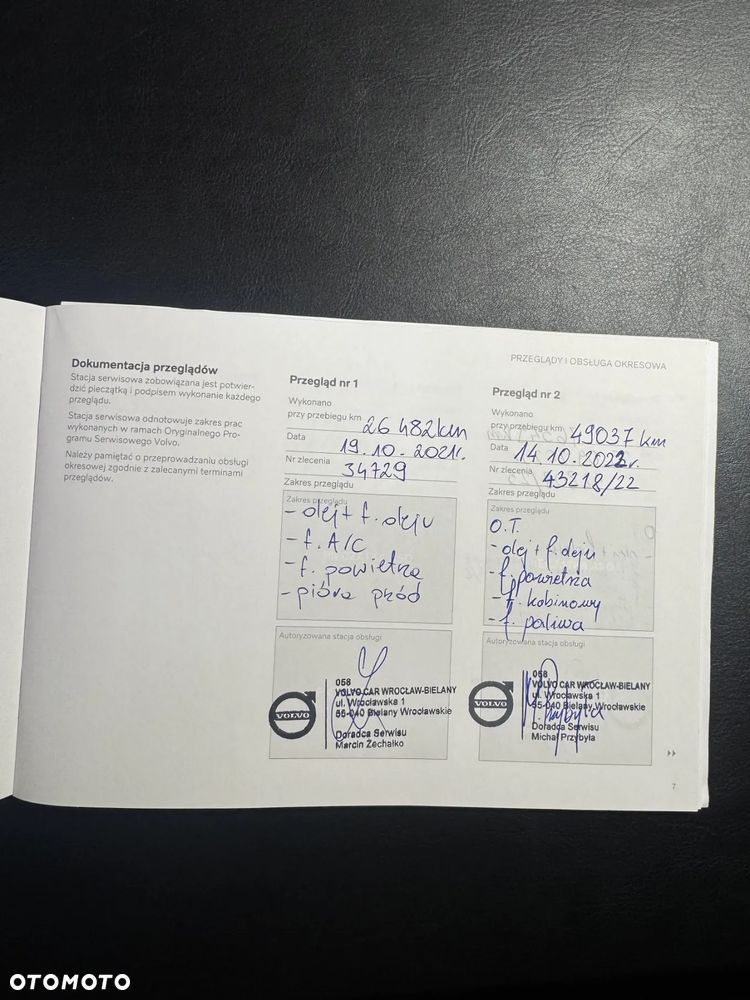 PRZEGLĄDY I OBSŁUGA OKRESOWA
Dokumentacja przeglądów
Stacja serwisowa zobowiązana jest potwier-
dzić pieczątką i podpisem wykonanie każdego
przeglądu.
Stacja serwisowa odnotowuje zakres prac
wykonanych w ramach Oryginalnego Pro-
gramu Serwisowego Volvo.
Należy pamiętać o przeprowadzaniu obsługi
okresowej zgodnie z zalecanymi terminami
przeglądów.
Przegląd nr 1
Wykonano
przy przebiegu km 26 482km
Data 19.10.2021r.
Nr zlecenia 34729
Zakres przeglądu
Zakres przeglądu
- olej + f. oleju
- f. A/C
- f. powietrza
- pióra przód
Autoryzowana stacja obsługi
058
VOLVO CAR WROCŁAW-BIELANY
ul. Wrocławska 1
55-040 Bielany Wrocławskie
Doradca Serwisu
Marcin Żechałko
VOLVO
Przegląd nr 2
Wykonano
przy przebiegu km 49037 km
Data 14.10.2022r.
Nr zlecenia 43218/22
Zakres przeglądu
Zakres przeglądu
O.T.
- olej + f. oleju
- f. powietrza
- f. kabinowy
- f. paliwa
Autoryzowana stacja obsługi
058
VOLVO CAR WROCŁAW-BIELANY
ul. Wrocławska 1
55-040 Bielany Wrocławskie
Doradca Serwisu
Michał Przybyła
VOLVO
7
OTOMOTO